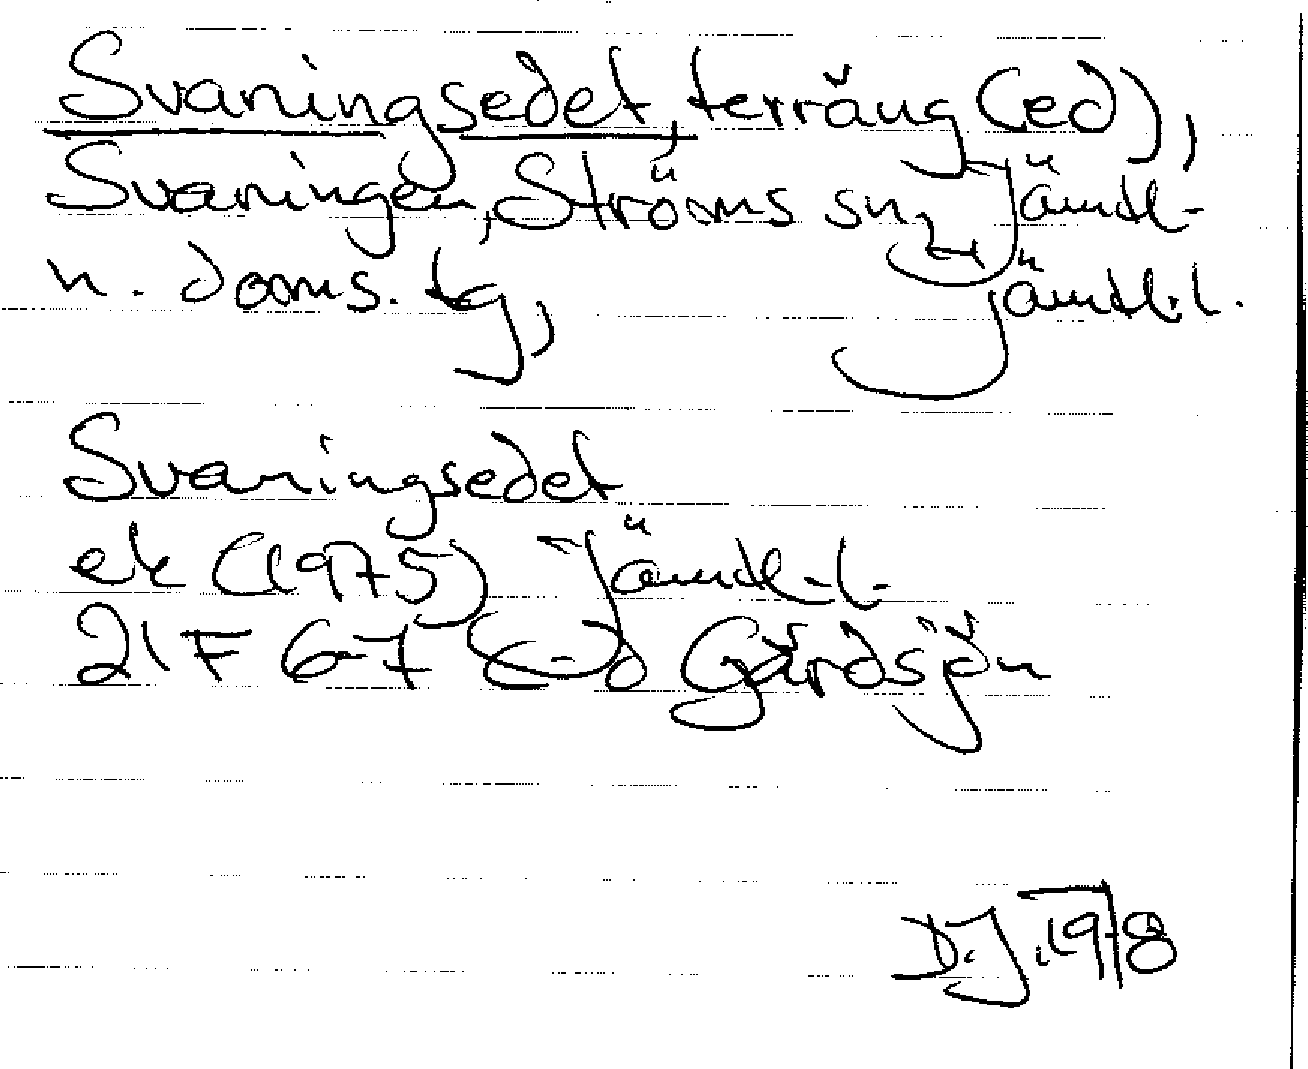 Svaningsedet, terräng (ed),
Svaningen, Ströms sn, Jämtl-
n. dooms. tg, Jämtl.l.
Svaningsedet
ek (1975) Jämtl.l.
21 F 6-7 c-d Gärdsjön
D.J. 1978